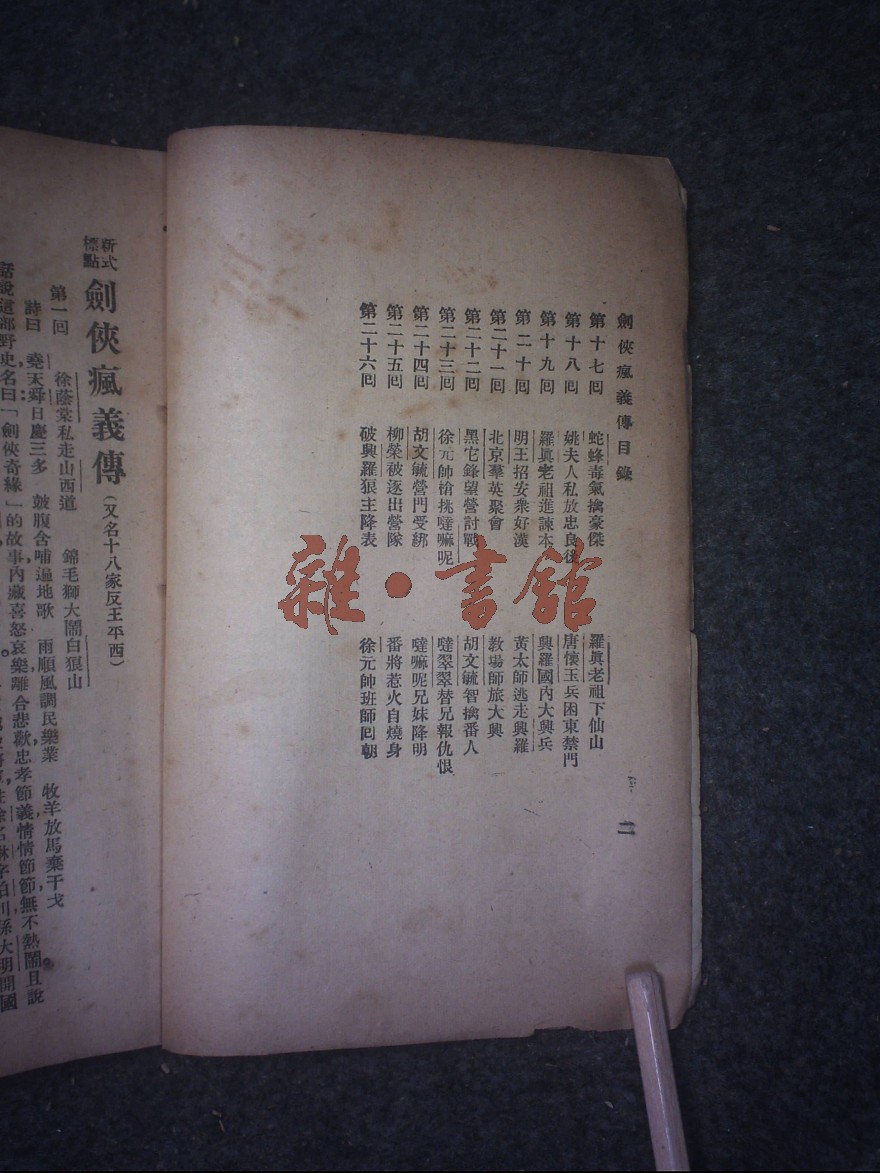 劍俠瘋義傳目錄
二
第十七囘 蛇蜂毒氣擒豪傑 羅眞老祖下仙山
第十八囘 姚夫人私放忠良後 唐懷玉兵困東禁門
第十九囘 羅眞老祖進諫本 興羅國內大興兵
第二十囘 明王招安衆好漢 黃太師逃走興羅
第二十一囘 北京羣英聚會 教場師旅大興
第二十二囘 黑它鋒望營討戰 胡文毓智擒番人
第二十三囘 徐元帥槍挑噠嘛呢 噠翠翠替兄報仇恨
第二十四囘 胡文毓營門受綁 噠嘛呢兄妹降明
第二十五囘 柳榮被逐出營隊 番將惹火自燒身
第二十六囘 破興羅狼主降表 徐元帥班師囘朝
雜·書館
新式標點 劍俠瘋義傳(又名十八家反王平西)
第一囘 徐蔭棠私走山西道 錦毛獅大鬧白狼山
詩曰 堯天舜日慶三多 皷腹含哺遍地歌 雨順風調民樂業 牧羊放馬棄干戈
話說這部野史名曰「劍俠奇緣」的故事內藏喜怒哀樂離合悲歡忠孝節義情情節節無不熱鬧。且說